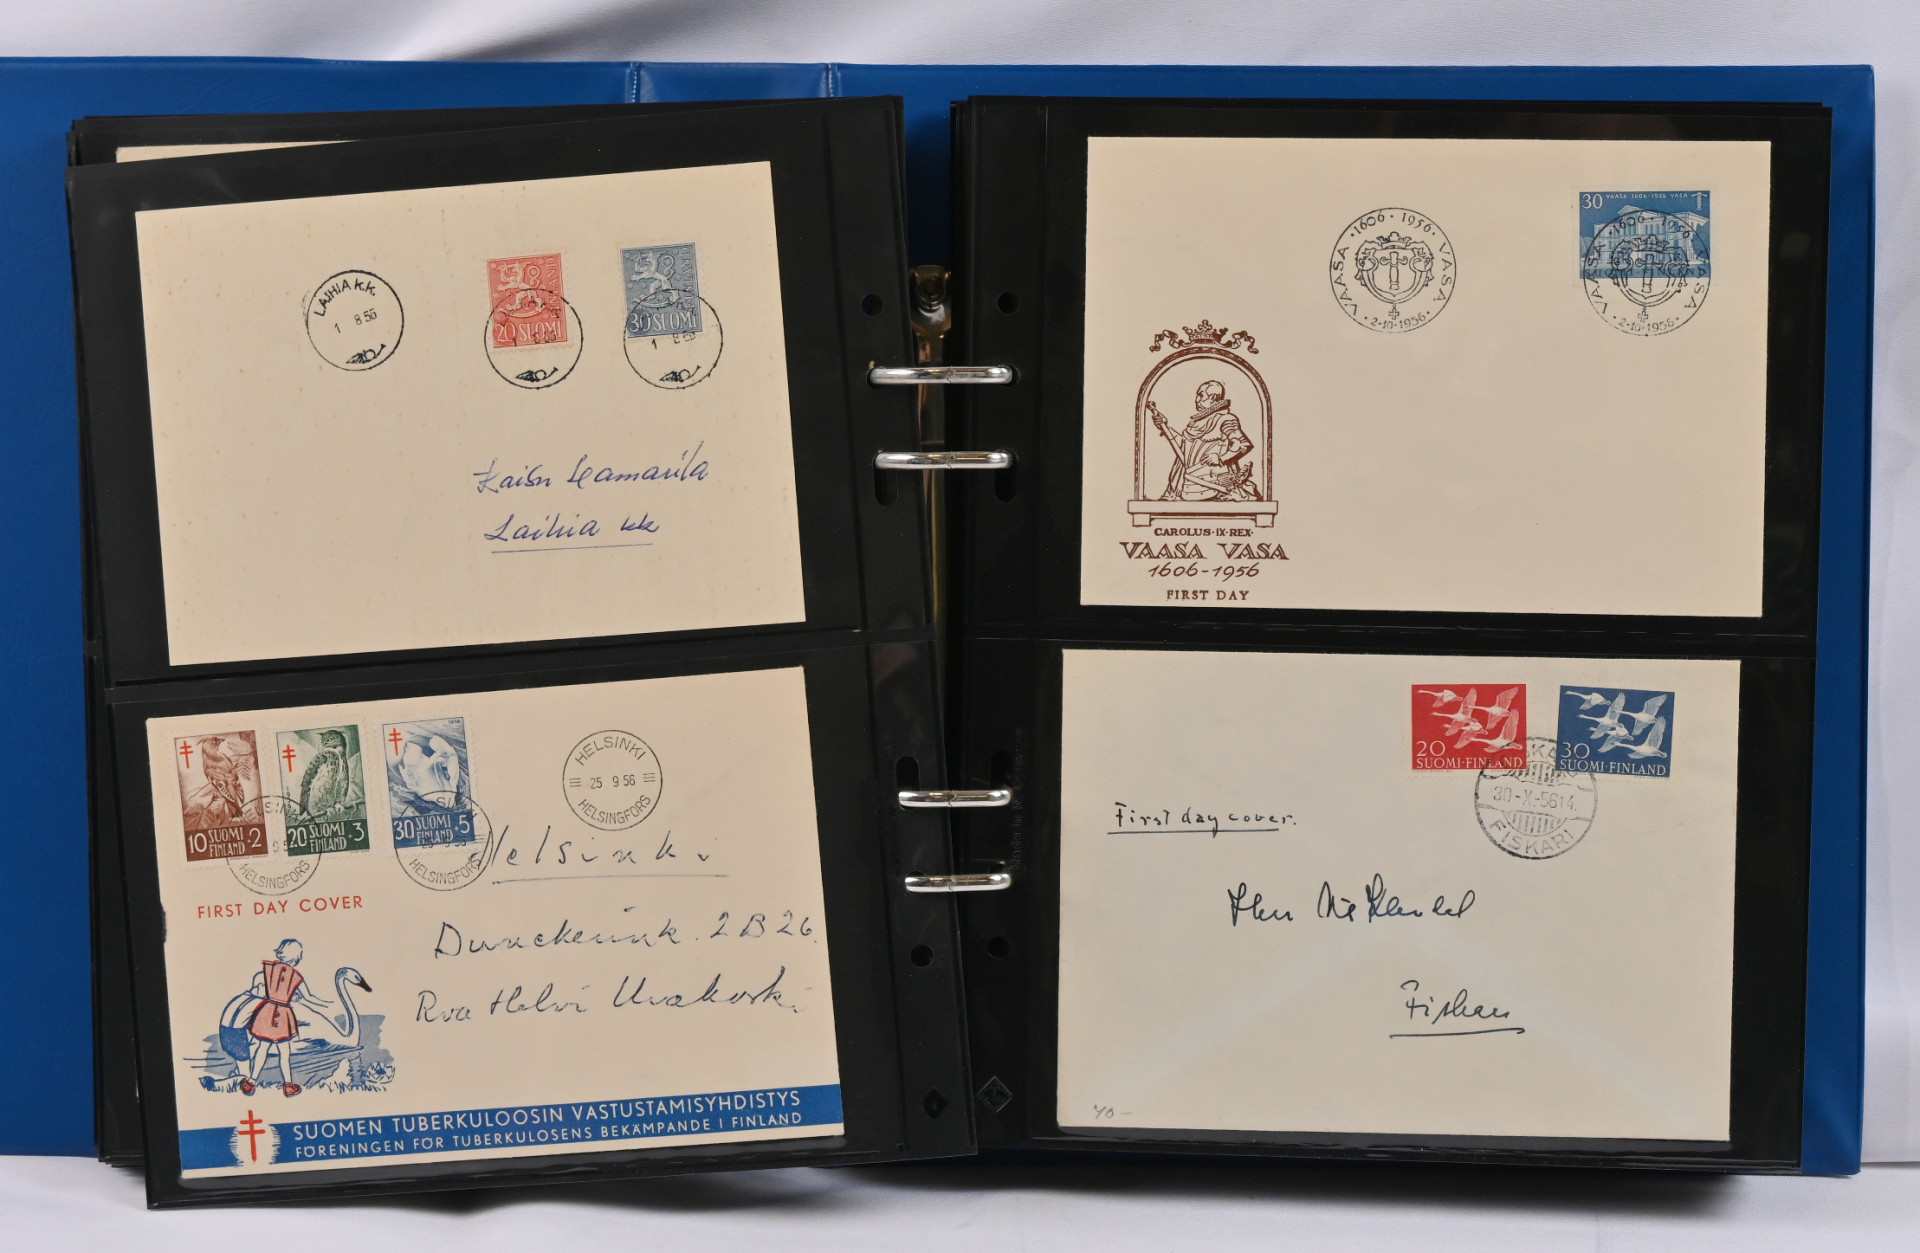 LAIHIA k.k.
1 8.56
20 SUOMI
1 8.56
30 SUOMI
1 8 56
Laihia kk
10 SUOMI FINLAND +2
20 SUOMI FINLAND +3
1956
30 SUOMI FINLAND +5
HELSINKI
25 9 56
HELSINGFORS
HELSINGFORS
HELSINGFORS
FIRST DAY COVER
Helsinki
2 B 26.
SUOMEN TUBERKULOOSIN VASTUSTAMISYHDISTYS
FÖRENINGEN FÖR TUBERKULOSENS BEKÄMPANDE I FINLAND
VAASA · 1606 · 1956 · VASA
· 2·10·1956 ·
30 VAASA 1606-1956 VASA
VAASA · 1606 · 1956 · VASA
· 2·10·1956 ·
CAROLUS·IX·REX·
VAASA VASA
1606-1956
FIRST DAY
20
SUOMI·FINLAND
30
SUOMI·FINLAND
30.-X.-56 14.
FISKARI
First day cover.
40-